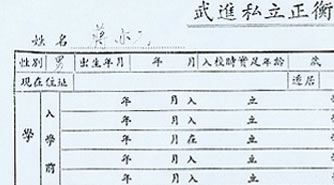 武進私立正衡
姓名 蔣
性別 男 出生年月 年 月 入校時實足年齡 歲
現在住址 遷居
學 入學前 年 月入 立
年 月入 立
年 月在 立
年 月入 立
年 月入 立